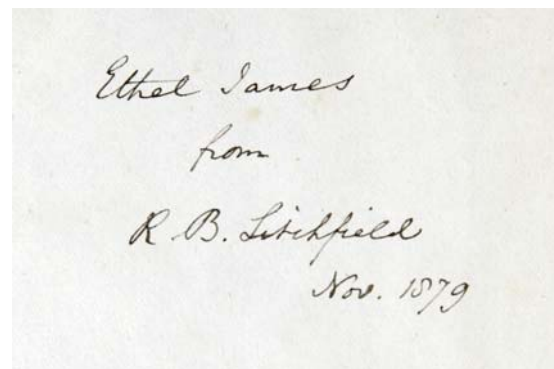 Ethel James
from
R. B. Litchfield
Nov. 1879